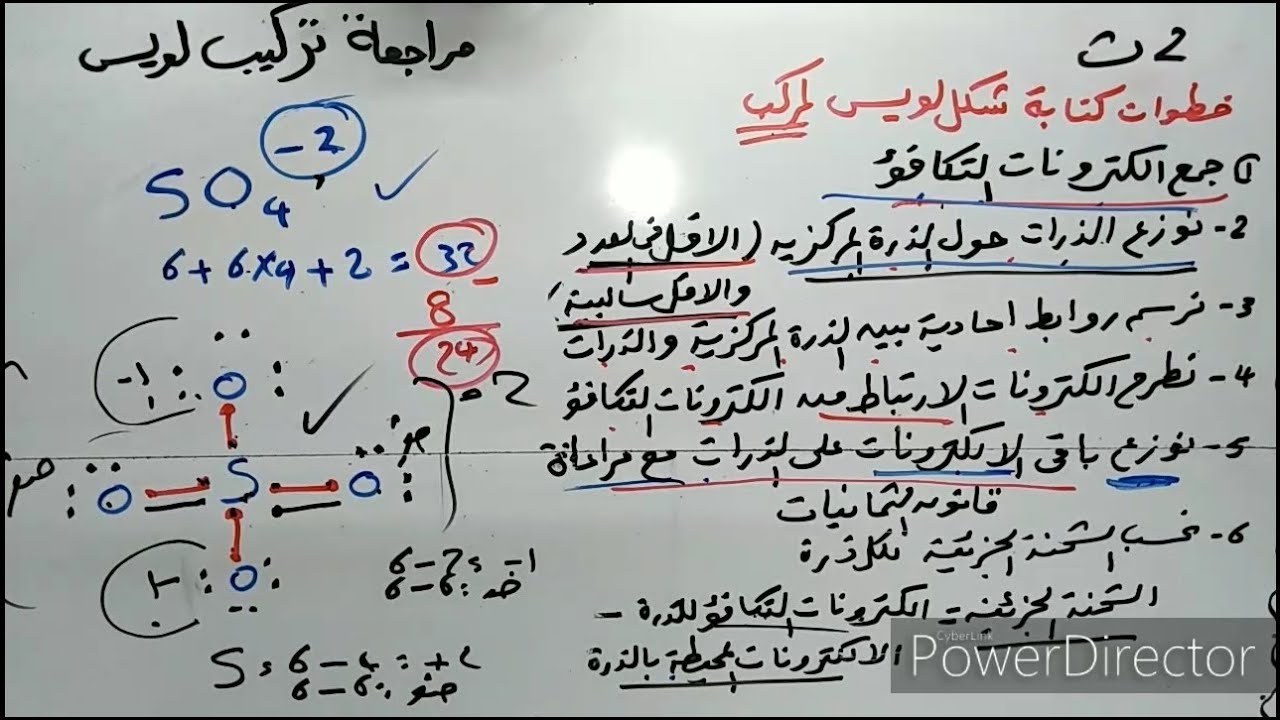 2 ث
مراجعة تركيب لويس
خطوات كتابة شكل لويس لمركب
① جمع الكترونات التكافؤ
2- نوزع الذرات حول الذرة المركزيه (الاقل في العدد
والاقل سالبية)
3- نرسم روابط احادية بين الذرة المركزية والذرات
4- نطرح الكترونات الارتباط من الكترونات التكافؤ
5- نوزع باقي الالكترونات على الذرات مع مراعاة
قانون الثمانيات
6- نحسب الشحنة الجزئية لكل ذرة
الشحنة الجزئية = الكترونات التكافؤ للذرة -
الالكترونات المحيطة بالذرة
SO4 -2
6+6×4+2=32
8
24
-1 O
= -2
O S O صفر
صفر
-1 O
6-7 = -1
6-6 = صفر
S = 6-4 = +2
6-6 = صفر
CyberLink
PowerDirector